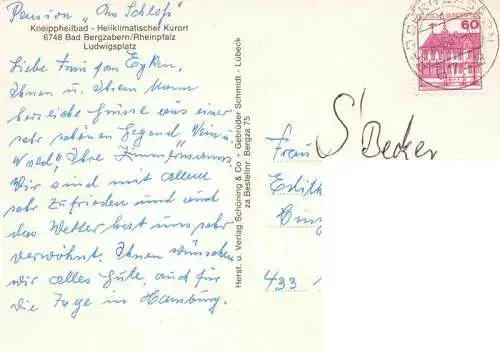 Pension "Am Schloß"
Kneippheilbad - Heilklimatischer Kurort
6748 Bad Bergzabern/Rheinpfalz
Ludwigsplatz
Liebe Frau von Eyken,
Ihnen u. Ihrem Mann
herzliche Grüsse aus einer
sehr schönen Gegend, Wein u.
Wald, Ihre Zimmermanns.
Wir sind mit allem
sehr zufrieden und auch
das Wetter hat uns sehr
verwöhnt. Ihnen wünschen
wir alles Gute, auch für
die Tage in Hamburg.
Herst. u. Verlag Schöning & Co - Gebrüder Schmidt - Lübeck
za Bestellnr. Bergza 75
60
S' Becker
Frau
Edith
433